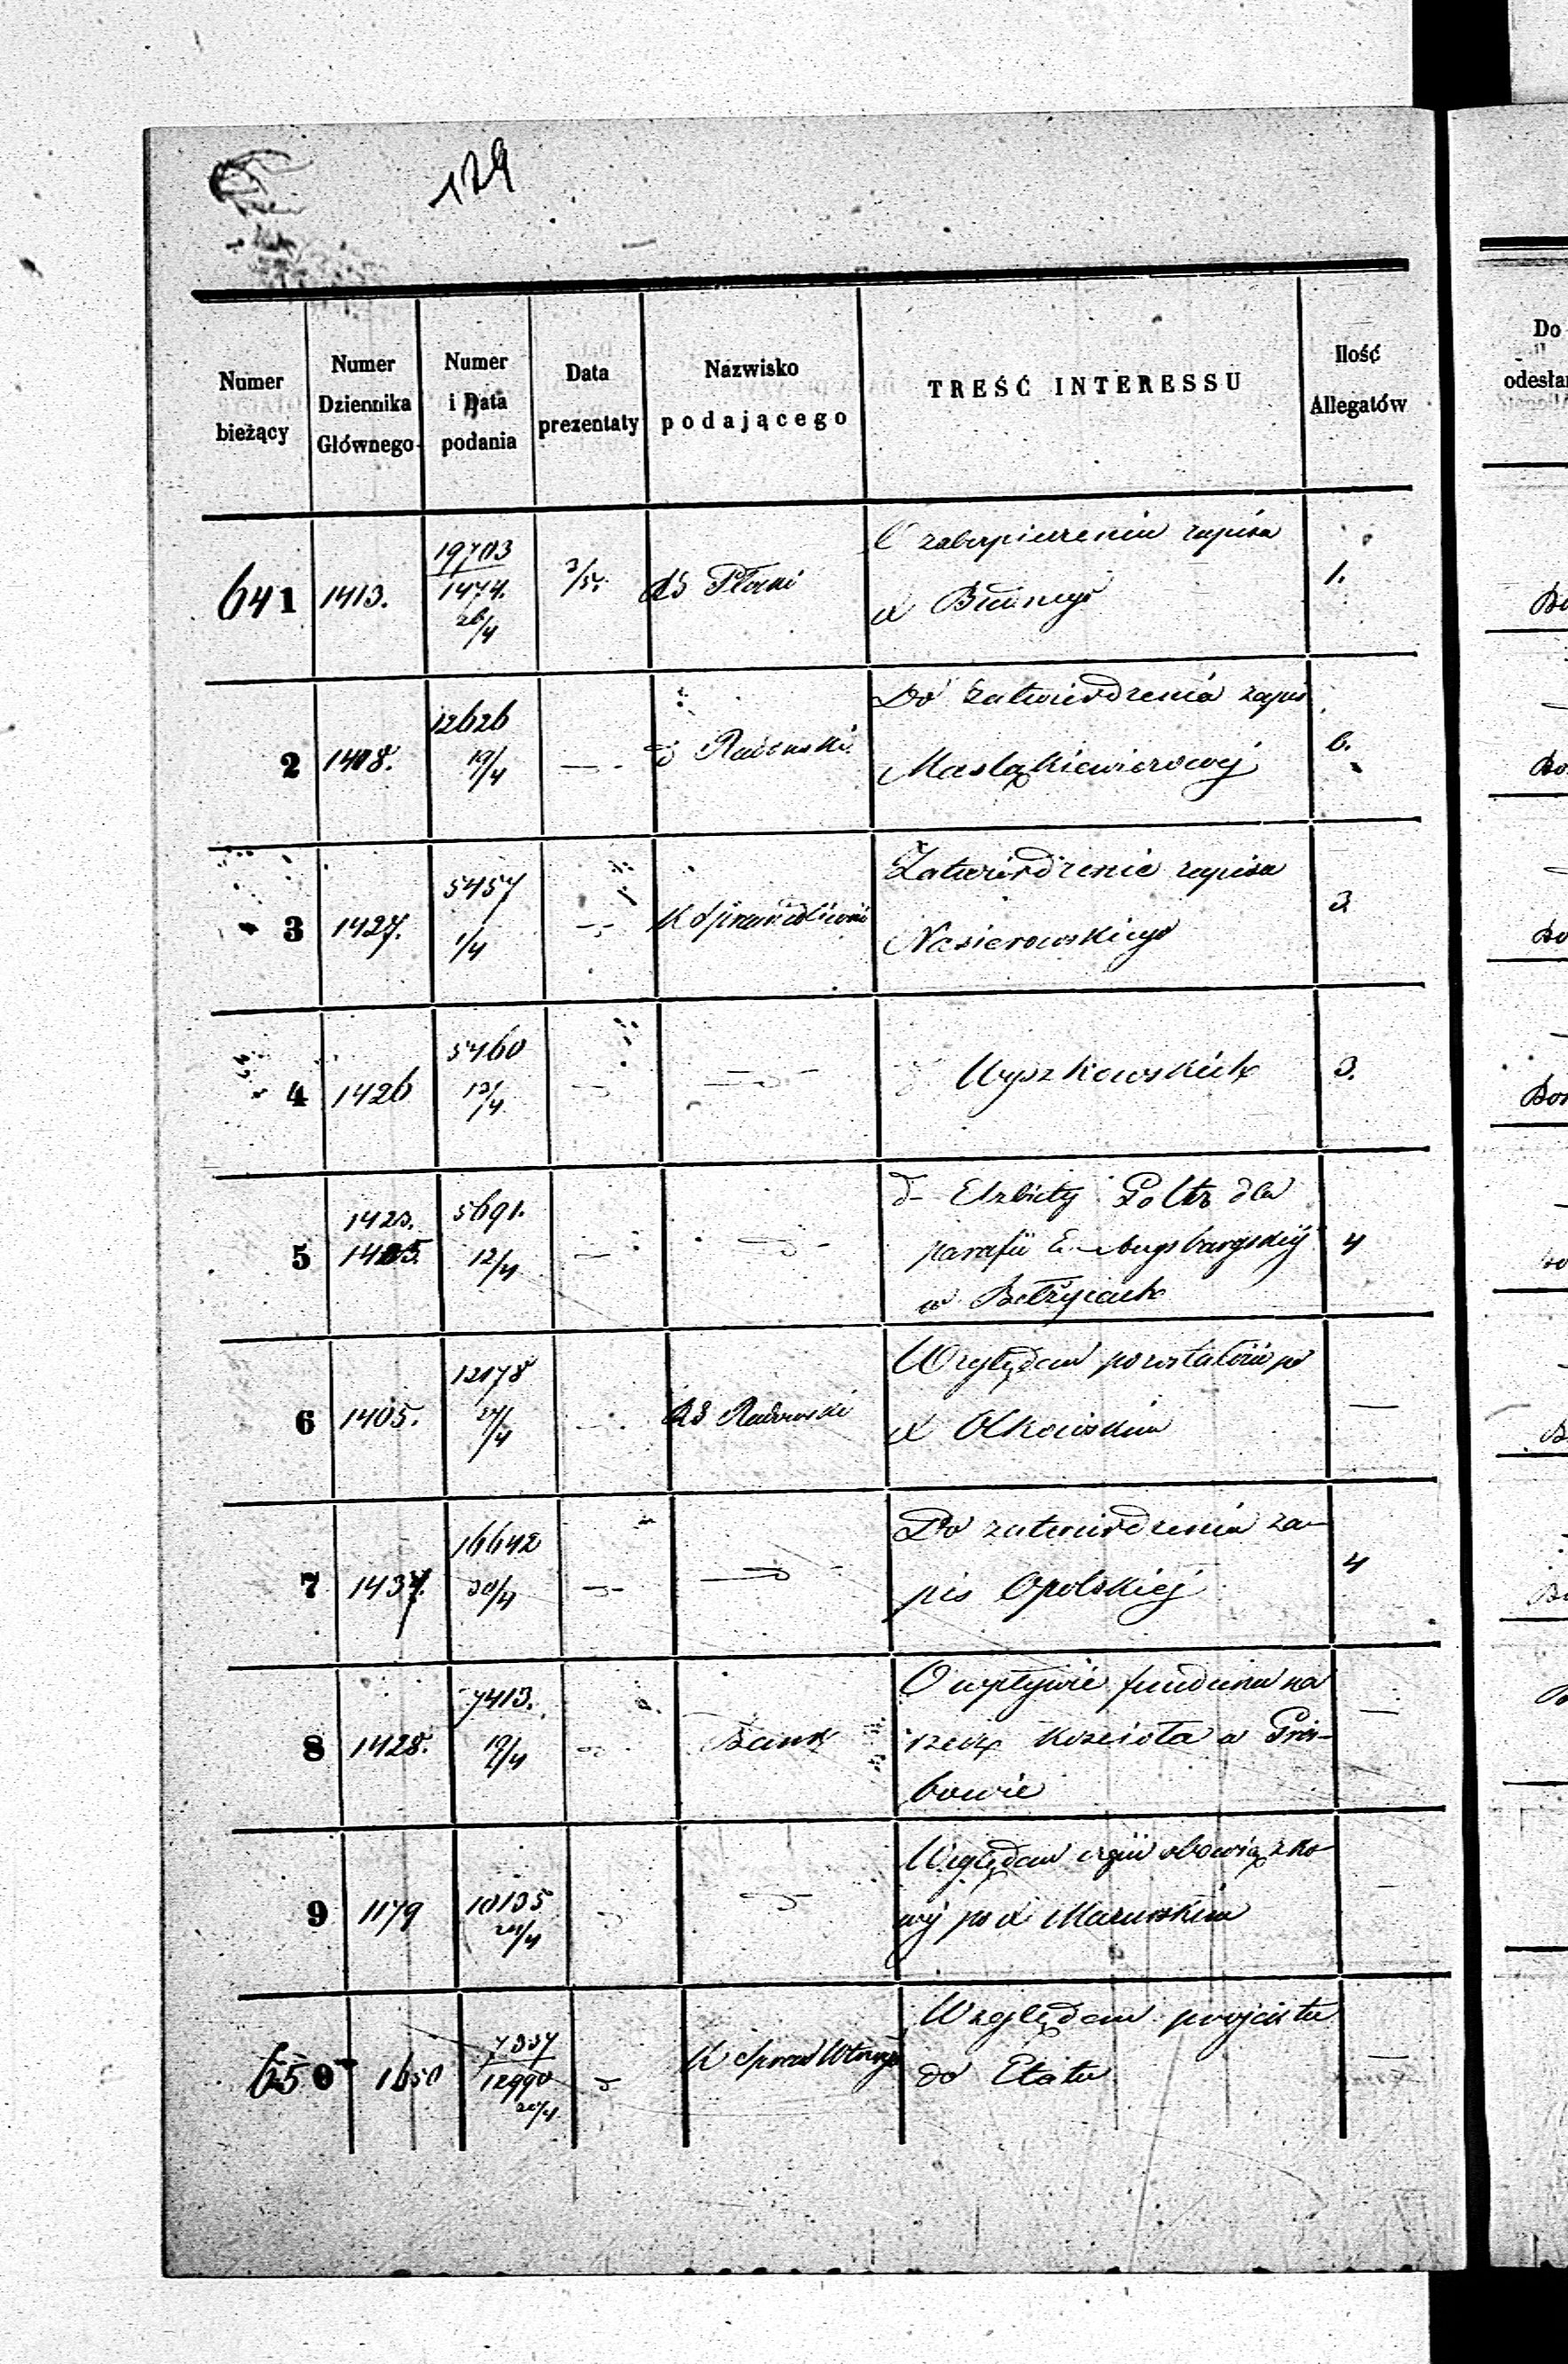 129
Numer bieżący | Numer Dziennika Głównego | Numer i Data podania | Data prezentaty | Nazwisko podającego | TREŚĆ INTERESSU | Ilość Allegatów
Do
odesła
641 | 1413. | 19703 1474. 26/4 | 3/5. | RG Płocki | O zabezpieczeniu zapisu
x | 1.
2 | 1408. | 12626 19/4 | — | d Radomski | Do zatwierdzenia zapis
Masłąkiewiczowej | 6.
3 | 1427. | 5457 1/4 | — | K Sprawiedliwości | Zatwierdzenie zapisu
Nasierowskiego | 3
4 | 1426 | 5460 13/4 | — | —d— | d Wyszkowskich | 3.
5 | 1423. 1425. | 5691. 12/4 | — | —d— | d- Elżbiety Goltz dla
parafii E. Augsburgskiej
w Bełżycach | 4
6 | 1405. | 12178 24/4 | — | RG Radomski | Względem pozostałości po
x Olkowskim | —
7 | 1437. | 16642 30/4 | — | —d— | Do zatwierdzenia za-
pis Opolskiej | 4
8 | 1428. | 7413. 19/4 | d | Bank | O wpływie funduszu na
rzecz kościoła w
bowie | —
9 | 1179 | 10135 24/4 | d | —d— | Względem obowiązko-
wej po x Mazurskim | —
650 | 1650 | 7337 12990 20/4 | d | K Spraw Wewn | Względem projektu
do Etatu | —